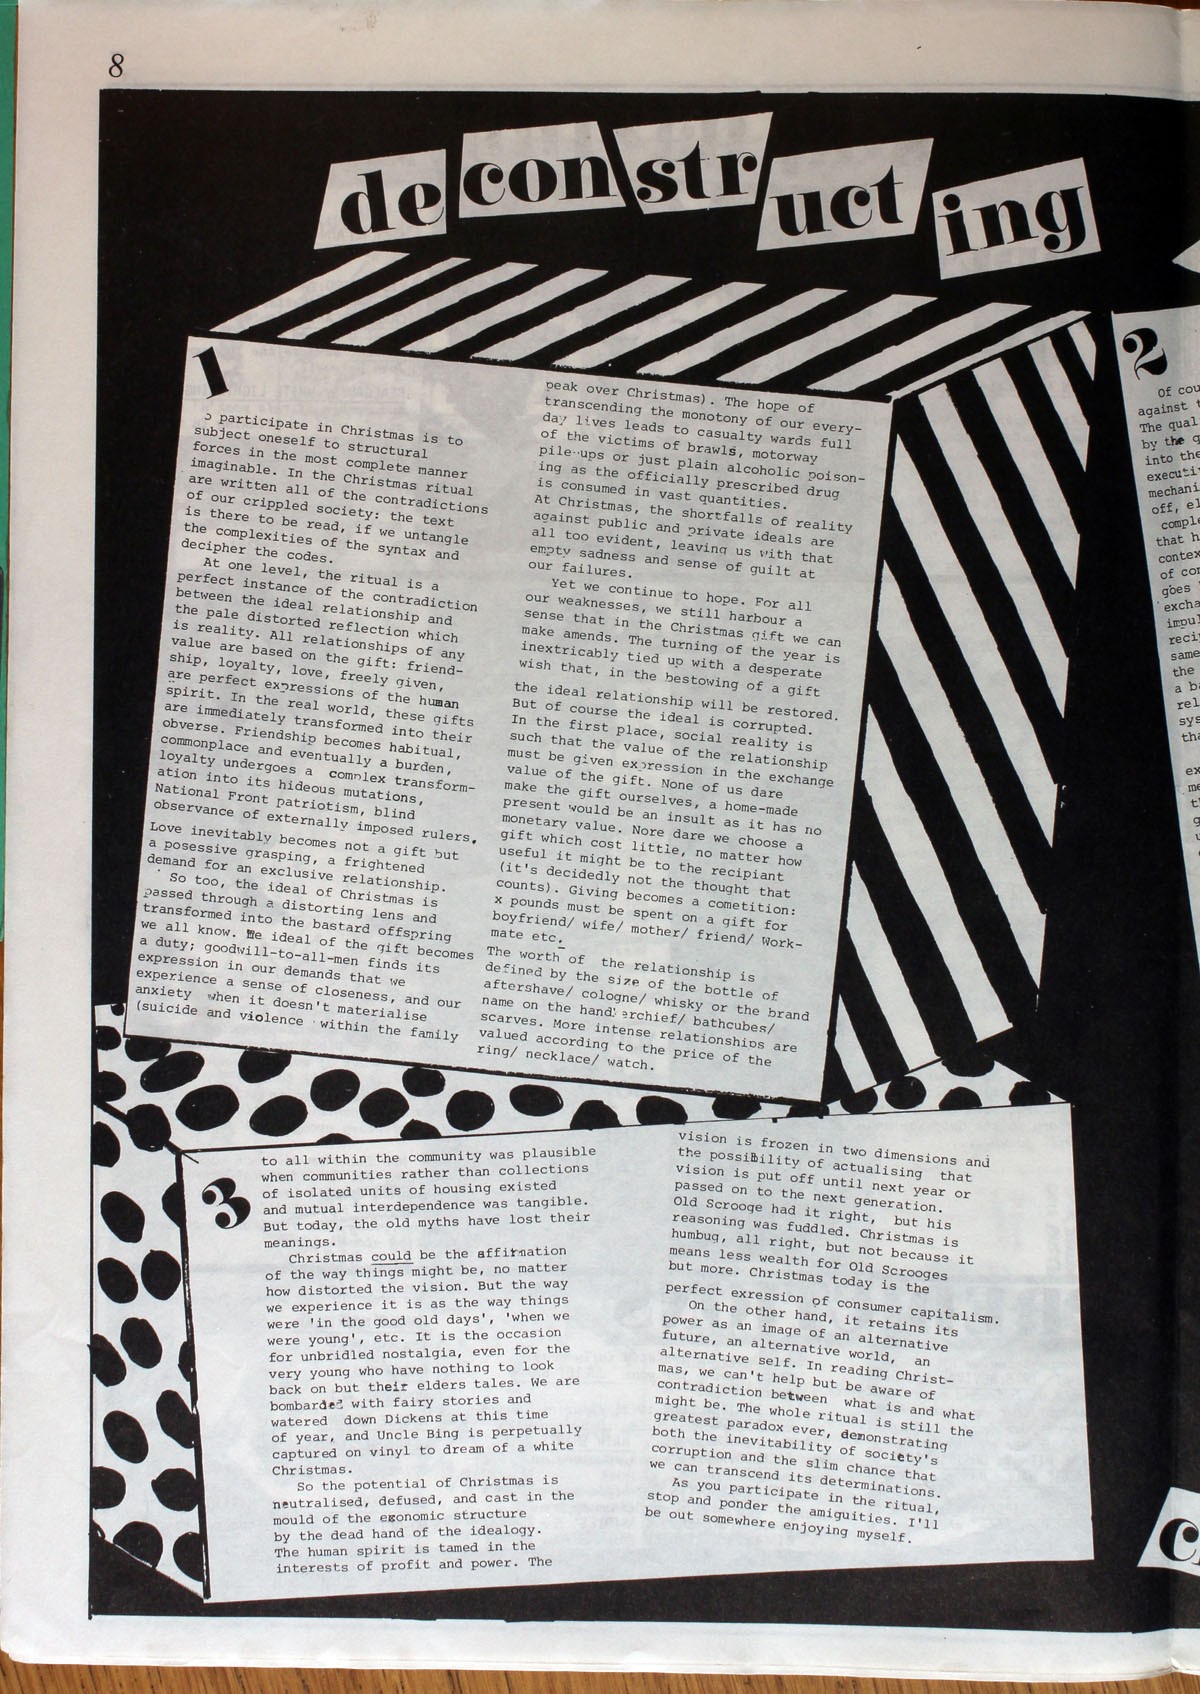 8
deconstructing
1
o participate in Christmas is to
subject oneself to structural
forces in the most complete manner
imaginable. In the Christmas ritual
are written all of the contradictions
of our crippled society: the text
is there to be read, if we untangle
the complexities of the syntax and
decipher the codes.
At one level, the ritual is a
perfect instance of the contradiction
between the ideal relationship and
the pale distorted reflection which
is reality. All relationships of any
value are based on the gift: friend-
ship, loyalty, love, freely given,
are perfect expressions of the human
spirit. In the real world, these gifts
are immediately transformed into their
obverse. Friendship becomes habitual,
commonplace and eventually a burden,
loyalty undergoes a complex transform-
ation into its hideous mutations,
National Front patriotism, blind
observance of externally imposed rulers.
Love inevitably becomes not a gift but
a posessive grasping, a frightened
demand for an exclusive relationship.
So too, the ideal of Christmas is
passed through a distorting lens and
transformed into the bastard offspring
we all know. The ideal of the gift becomes
a duty; goodwill-to-all-men finds its
expression in our demands that we
experience a sense of closeness, and our
anxiety when it doesn't materialise
(suicide and violence within the family
peak over Christmas). The hope of
transcending the monotony of our every-
day lives leads to casualty wards full
of the victims of brawls, motorway
pile-ups or just plain alcoholic poison-
ing as the officially prescribed drug
is consumed in vast quantities.
At Christmas, the shortfalls of reality
against public and private ideals are
all too evident, leaving us with that
empty sadness and sense of guilt at
our failures.
Yet we continue to hope. For all
our weaknesses, we still harbour a
sense that in the Christmas gift we can
make amends. The turning of the year is
inextricably tied up with a desperate
wish that, in the bestowing of a gift
the ideal relationship will be restored.
But of course the ideal is corrupted.
In the first place, social reality is
such that the value of the relationship
must be given expression in the exchange
value of the gift. None of us dare
make the gift ourselves, a home-made
present would be an insult as it has no
monetary value. Nore dare we choose a
gift which cost little, no matter how
useful it might be to the recipiant
(it's decidedly not the thought that
counts). Giving becomes a cometition:
x pounds must be spent on a gift for
boyfriend/ wife/ mother/ friend/ Work-
mate etc.
The worth of the relationship is
defined by the size of the bottle of
aftershave/ cologne/ whisky or the brand
name on the handkerchief/ bathcubes/
scarves. More intense relationships are
valued according to the price of the
ring/ necklace/ watch.
2
Of cou
against t
The qual
by the g
into the
executi
mechani
off, el
comple
that h
contex
of con
goes
excha
impul
reci
same
the
a ba
rel
sys
tha
ex
me
t
g
3
to all within the community was plausible
when communities rather than collections
of isolated units of housing existed
and mutual interdependence was tangible.
But today, the old myths have lost their
meanings.
Christmas could be the affirmation
of the way things might be, no matter
how distorted the vision. But the way
we experience it is as the way things
were 'in the good old days', 'when we
were young', etc. It is the occasion
for unbridled nostalgia, even for the
very young who have nothing to look
back on but their elders tales. We are
bombarded with fairy stories and
watered down Dickens at this time
of year, and Uncle Bing is perpetually
captured on vinyl to dream of a white
Christmas.
So the potential of Christmas is
neutralised, defused, and cast in the
mould of the economic structure
by the dead hand of the idealogy.
The human spirit is tamed in the
interests of profit and power. The
vision is frozen in two dimensions and
the possibility of actualising that
vision is put off until next year or
passed on to the next generation.
Old Scrooge had it right, but his
reasoning was fuddled. Christmas is
humbug, all right, but not because it
means less wealth for Old Scrooges
but more. Christmas today is the
perfect exression of consumer capitalism.
On the other hand, it retains its
power as an image of an alternative
future, an alternative world, an
alternative self. In reading Christ-
mas, we can't help but be aware of
contradiction between what is and what
might be. The whole ritual is still the
greatest paradox ever, demonstrating
both the inevitability of society's
corruption and the slim chance that
we can transcend its determinations.
As you participate in the ritual,
stop and ponder the amiguities. I'll
be out somewhere enjoying myself.